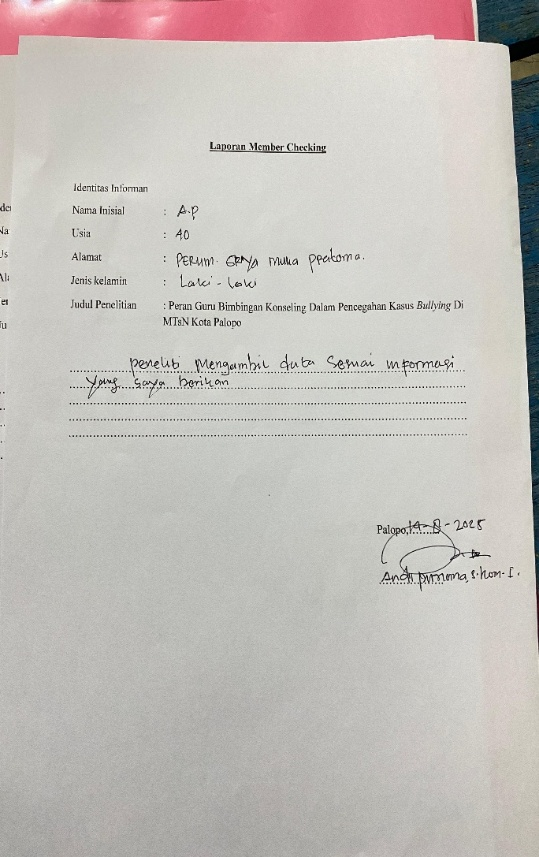 Laporan Member Checking
Identitas Informan
Nama Inisial : A.P
Usia : 40
Alamat : PERUM. GRAYA mulia
Jenis kelamin : Laki - laki
Judul Penelitian : Peran Guru Bimbingan Konseling Dalam Pencegahan Kasus Bullying Di
MTsN Kota Palopo
peneliti Mengambil data Sesuai informasi
yang saya berikan
Palopo, 2025
Andi purnoma, S.Kom.I.